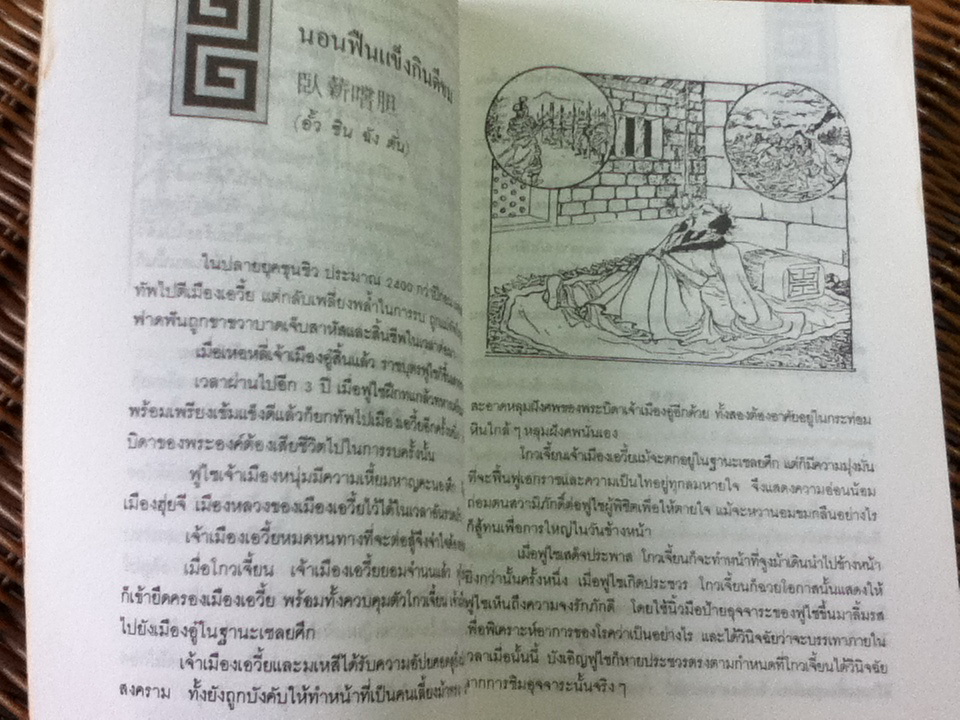 นอนฟืนแข็งกินดีขม
臥薪嚐胆
(อั้ว ซิน ฉัง ตั่น)
ในปลายยุคชุนชิว ประมาณ 2400 กว่าปีก่อน
ทัพไปตีเมืองเอวี้ย แต่กลับเพลี่ยงพล้ำในการรบ ถูก
ฟาดฟันถูกขาขวาบาดเจ็บสาหัสและสิ้นชีพในเวลาต่อมา
เมื่อเหอหลีเจ้าเมืองอู๋สิ้นแล้ว ราชบุตรฟูไช
เวลาผ่านไปอีก 3 ปี เมื่อฟูไชฝึกทแกล้วทหาร
พร้อมเพรียงเข้มแข็งดีแล้วก็ยกทัพไปเมืองเอวี้ยอีกครั้ง
บิดาของพระองค์ต้องเสียชีวิตไปในการรบครั้งนั้น
ฟูไชเจ้าเมืองหนุ่มมีความเหี้ยมหาญคะนอง
เมืองฮุ่ยจี เมืองหลวงของเมืองเอวี้ยไว้ได้ในเวลา
เจ้าเมืองเอวี้ยหมดหนทางที่จะต่อสู้จึงจำใจ
เมื่อโกวเจี้ยน เจ้าเมืองเอวี้ยยอมจำนนแล้ว
ก็เข้ายึดครองเมืองเอวี้ย พร้อมทั้งควบคุมตัวโกวเจี้ยน
ไปยังเมืองอู๋ในฐานะเชลยศึก
เจ้าเมืองเอวี้ยและมเหสีได้รับความอัปยศ
สงคราม ทั้งยังถูกบังคับให้ทำหน้าที่เป็นคนเลี้ยงม้า
สะอาดหลุมฝังศพของพระบิดาเจ้าเมืองอู๋อีกด้วย ทั้งสองต้องอาศัยอยู่ในกระท่อม
หินใกล้ ๆ หลุมฝังศพนั้นเอง
โกวเจี้ยนเจ้าเมืองเอวี้ยแม้จะตกอยู่ในฐานะเชลยศึก แต่ก็มีความมุ่งมั่น
ที่จะฟื้นฟูเอกราชและความเป็นไทอยู่ทุกลมหายใจ จึงแสดงความอ่อนน้อม
ถ่อมตนสวามิภักดิ์ต่อฟูไชผู้พิชิตเพื่อให้ตายใจ แม้จะหวานอมขมกลืนอย่างไร
ก็สู้ทนเพื่อการใหญ่ในวันข้างหน้า
เมื่อฟูไชเสด็จประพาส โกวเจี้ยนก็จะทำหน้าที่จูงม้าเดินนำไปข้างหน้า
ยิ่งกว่านั้นครั้งหนึ่ง เมื่อฟูไชเกิดประชวร โกวเจี้ยนก็ฉวยโอกาสนั้นแสดงให้
ฟูไชเห็นถึงความจงรักภักดี โดยใช้นิ้วมือป้ายอุจจาระของฟูไชขึ้นมาลิ้มรส
เพื่อพิเคราะห์อาการของโรคว่าเป็นอย่างไร และได้วินิจฉัยว่าจะบรรเทาภายใน
เวลาเมื่อนั้นนี้ บังเอิญฟูไชก็หายประชวรตรงตามกำหนดที่โกวเจี้ยนได้วินิจฉัย
จากการชิมอุจจาระนั้นจริง ๆ